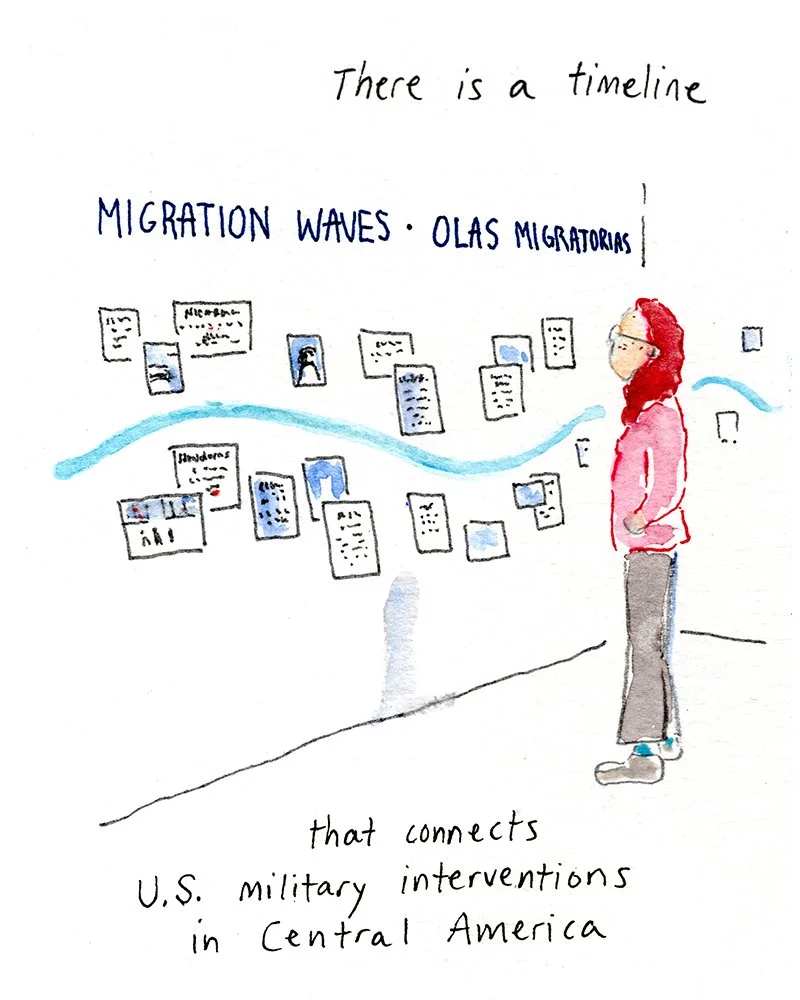 There is a timeline
MIGRATION WAVES · OLAS MIGRATORIAS
Honduras
that connects
U.S. military interventions
in Central America